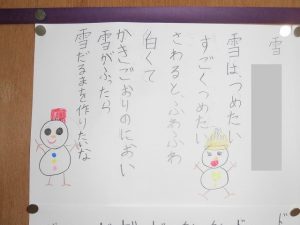 雪
雪は、つめたい
すごくつめたい
さわると、ふわふわ
白くて
かきごおりのにおい
雪がふったら
雪だるまを作りたいな